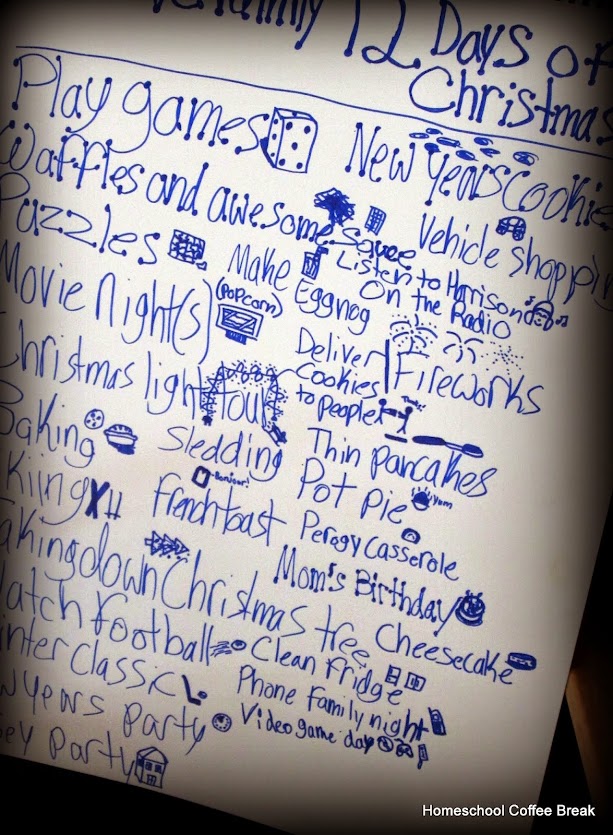 12 Days of
Christmas
Play games
New Years Cookie
Waffles and awesome Sauce
Vehicle Shoppin
Puzzles
Make Eggnog
Listen to Harrison
On the Radio
Movie Night(s)
(Popcorn)
Deliver
Cookies
to People
Thanks!
Fireworks
Christmas light tour
Baking
Sledding
Thin pancakes
Pot Pie
Yum
kiing
Bonjour!
French toast
Perogy Casserole
aking down Christmas tree
Mom's Birthday
Cheesecake
atch football
Clean Fridge
inter Classic
Phone family night
w years Party
Video game day
ey Party
Homeschool Coffee Break